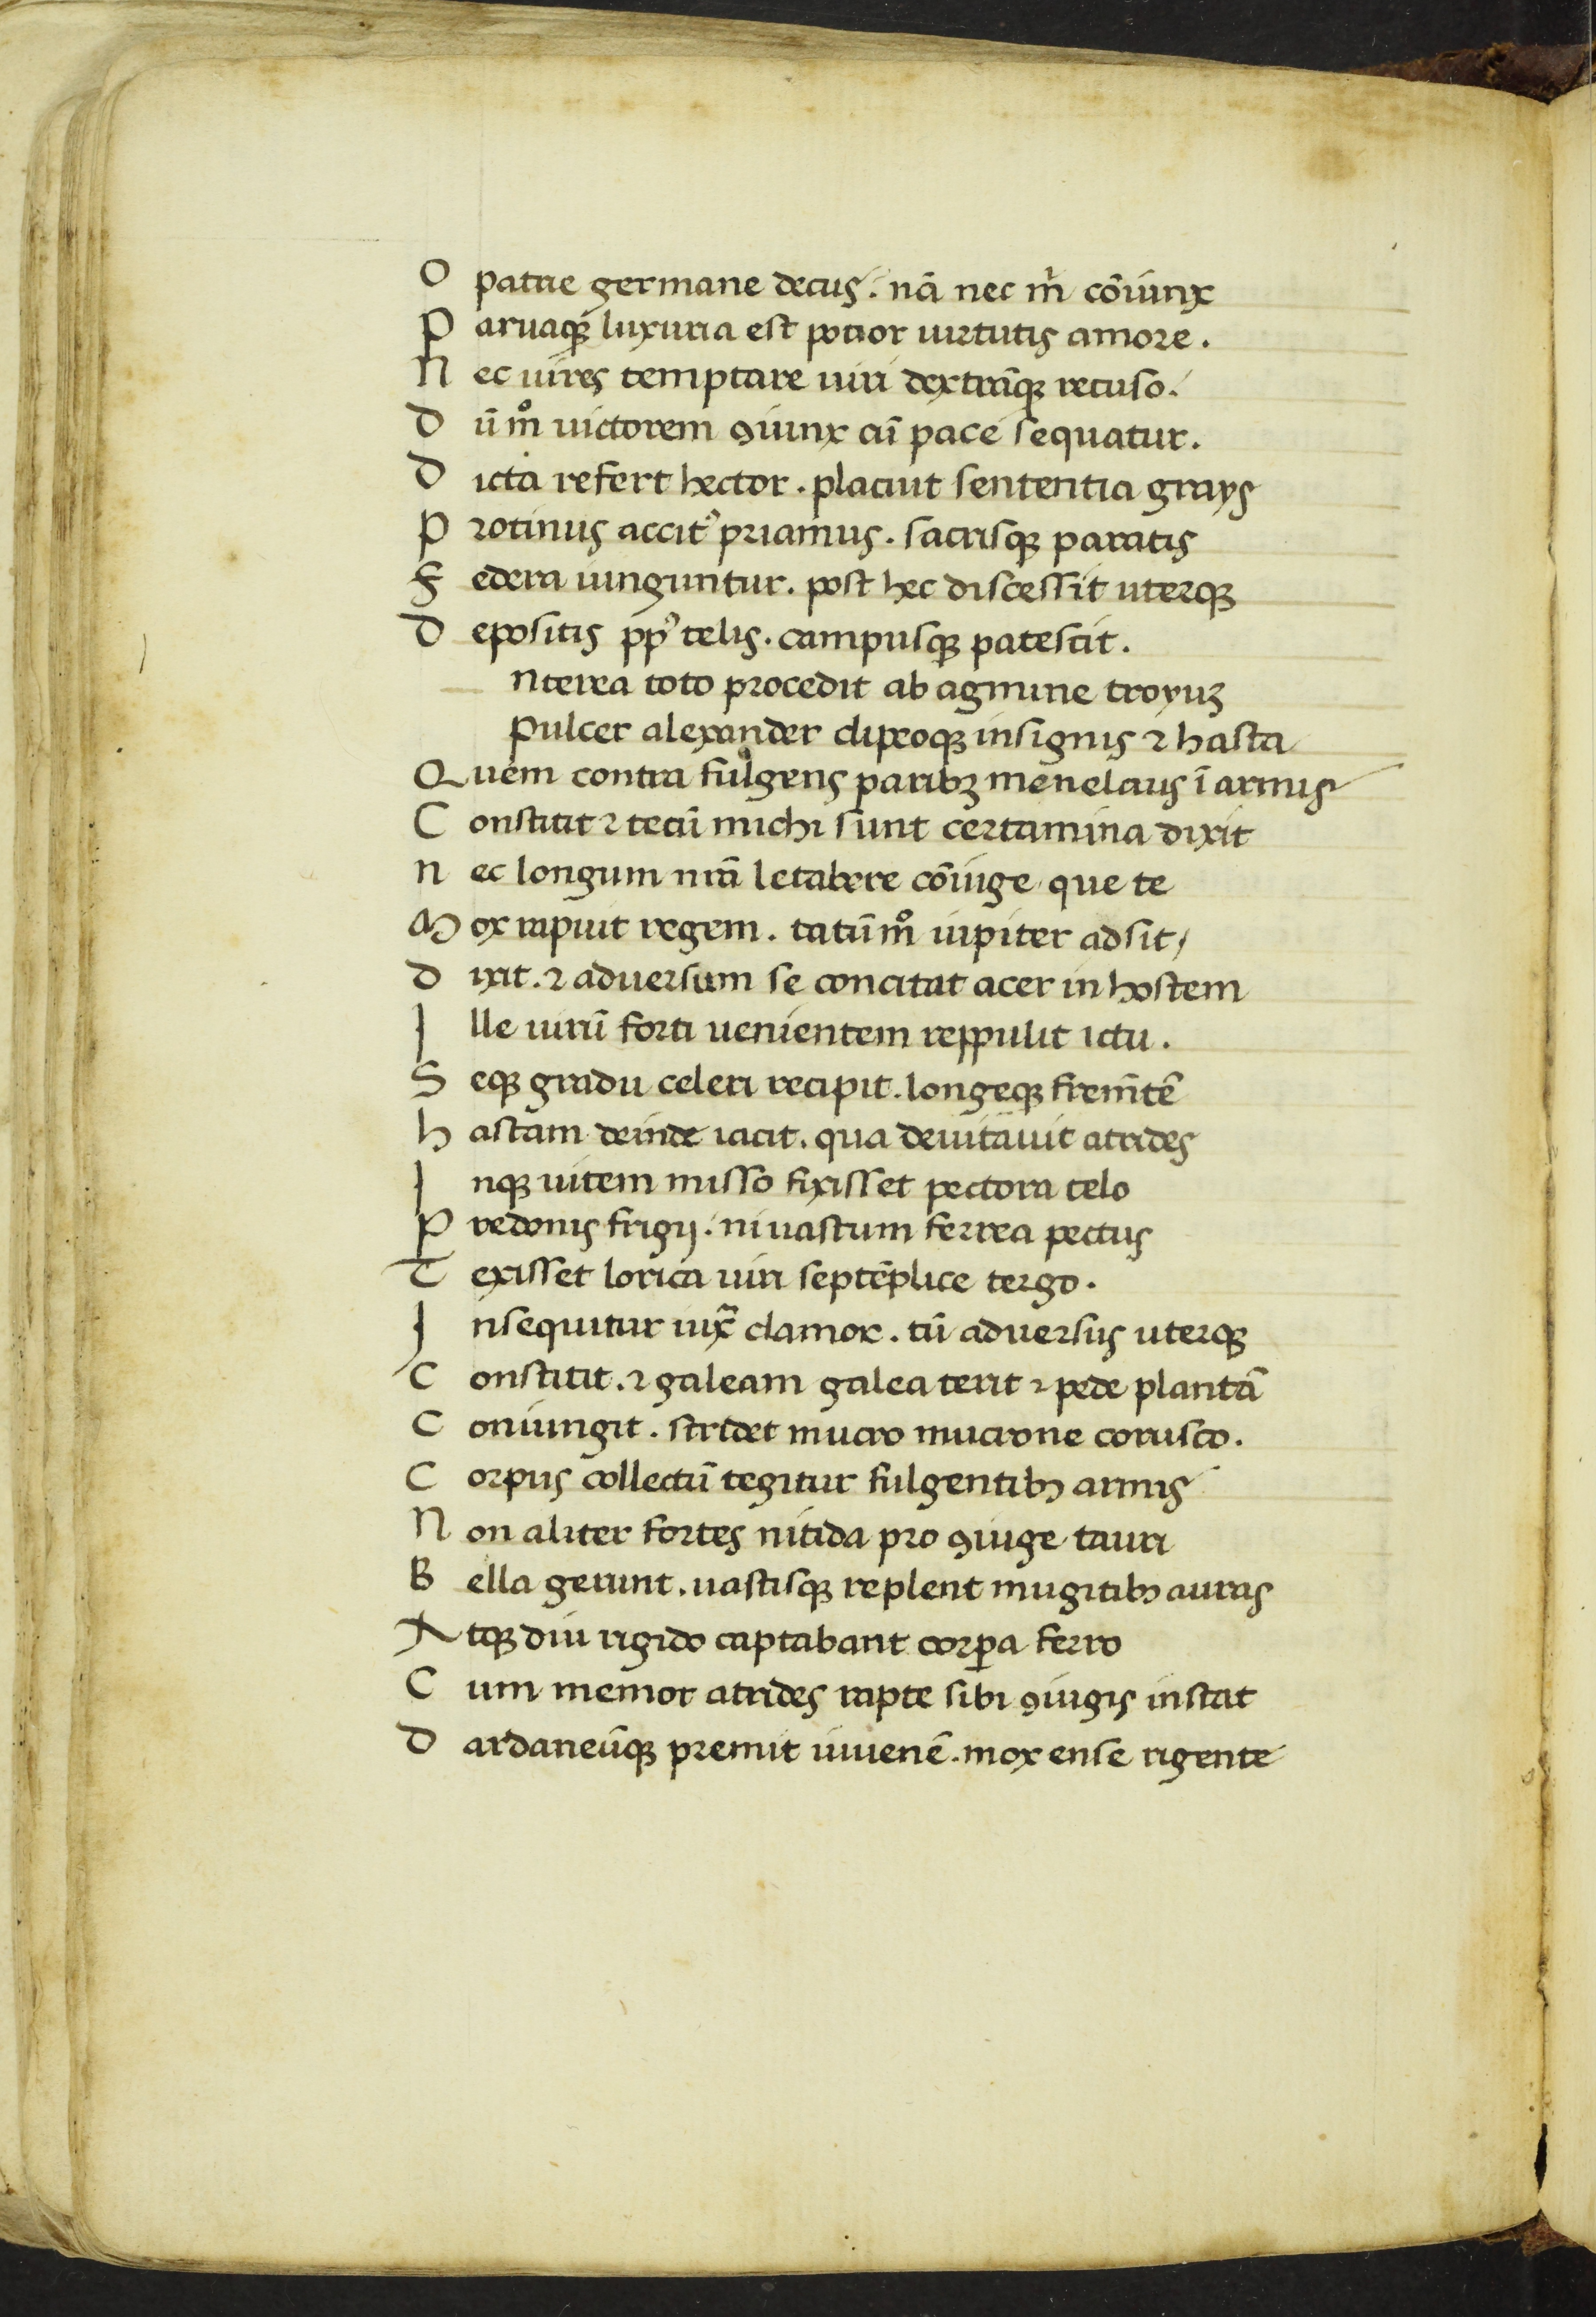 O patrie germane decus. nā nec m̄ cōiunx
P aruaqꝫ luxuria est potior uirtutis amore.
N ec uires temptare uiri dextrāqꝫ recuso.
D ū mͦ uictorem ꝯiunx cū pace sequatur.
D icta refert hector. placuit sententia grays
P rotinus accitꝰ priamus. sacrisqꝫ paratis
F edera iunguntur. post hec discessit uterqꝫ
D epositis pp̄ꝰ telis. campusqꝫ patescit.
nterea toto procedit ab agmine troyuꝫ
Pulcer alexander clipeoqꝫ insignis ⁊ hasta
Q uem contra fulgens paribꝫ menelaus ī armis
C onstitit ⁊ tecū michi sunt certamina dixit
N ec longum nrā letabere cōiuge que te
M ox rapuit regem. tātū mͦ iupiter adsit
D ixit. ⁊ aduersum se concitat acer in hostem
I lle uirū forti uenientem reppulit ictu.
S eqꝫ gradu celeri recipit. longeqꝫ frem̄tē
H astam deinde iacit. qua deuitauit atrides
I nqꝫ uitem misso fixisset pectora telo
P redonis frigij. ni uastum ferrea pectus
T exisset lorica uiri septēplice tergo.
I nsequitur iux̄ clamor. tū aduersus uterqꝫ
C onstitit. ⁊ galeam galea terit ⁊ pede plantā
C oniungit. stridet mucro mucrone corusco.
C orpus collectū tegitur fulgentibꝫ armis
N on aliter fortes nitida pro ꝯiuge tauri
B ella gerunt. uastisqꝫ replent mugitibꝫ auras
A tqꝫ diu rigido captabant corꝑa ferro
C um memor atrides rapte sibi ꝯiugis instat
D ardaneūqꝫ premit iuuenē. mox ense rigente